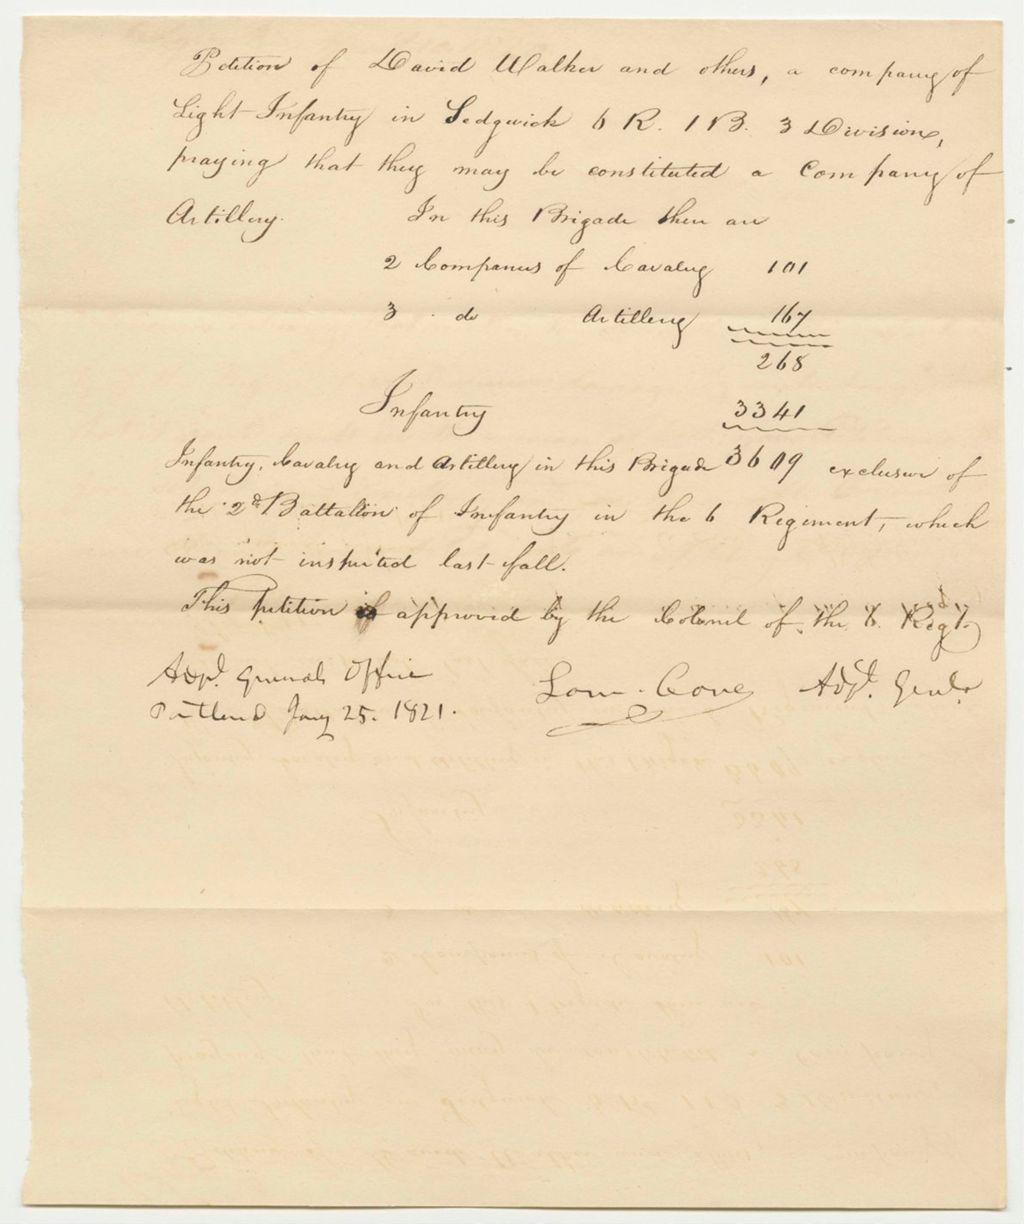 Petition of David Walker and others, a company of
Light Infantry in Sedgwick 6 R. 1 B. 3 Division,
praying that they may be constituted a Company of
Artillery. In this Brigade there are
2 Companies of Cavalry 101
3 do Artillery 167
268
Infantry 3341
Infantry, Cavalry and Artillery in this Brigade 3609 exclusive of
the 2d Battalion of Infantry in the 6 Regiment, which
was not inspected last fall.
This petition is approved by the Colonel of the 6. Regt.
Adjt. Generals Office
Portland Jany 25. 1821.
Saml. Cony Adjt. Genl.